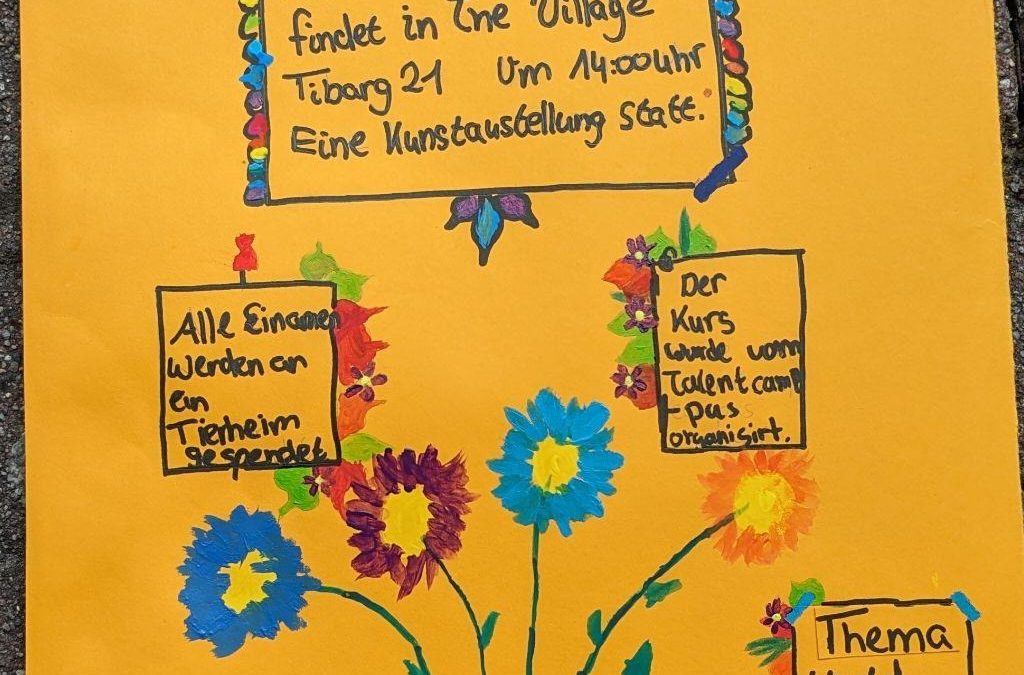 findet in The Village
Tibarg 21 Um 14:00uhr
Eine Kunstaustellung statt.
Alle Einamen
werden an
ein
Tierheim
gespendet
Der
Kurs
wurde vom
Talentcamp
-pus
organisirt.
Thema